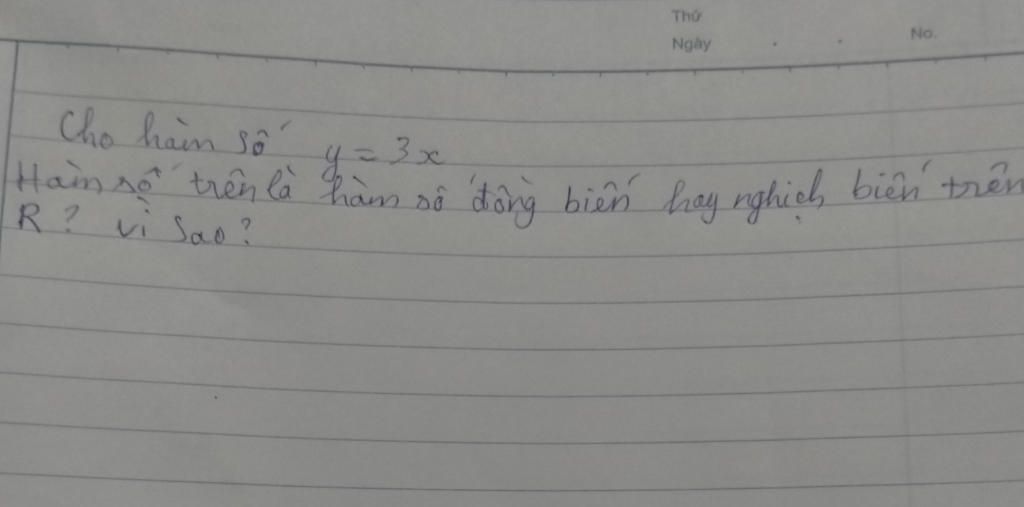 Thứ
Ngày . . No.
Cho hàm số y = 3x
Hàm số trên là hàm số đồng biến hay nghịch biến trên
R? vì sao?